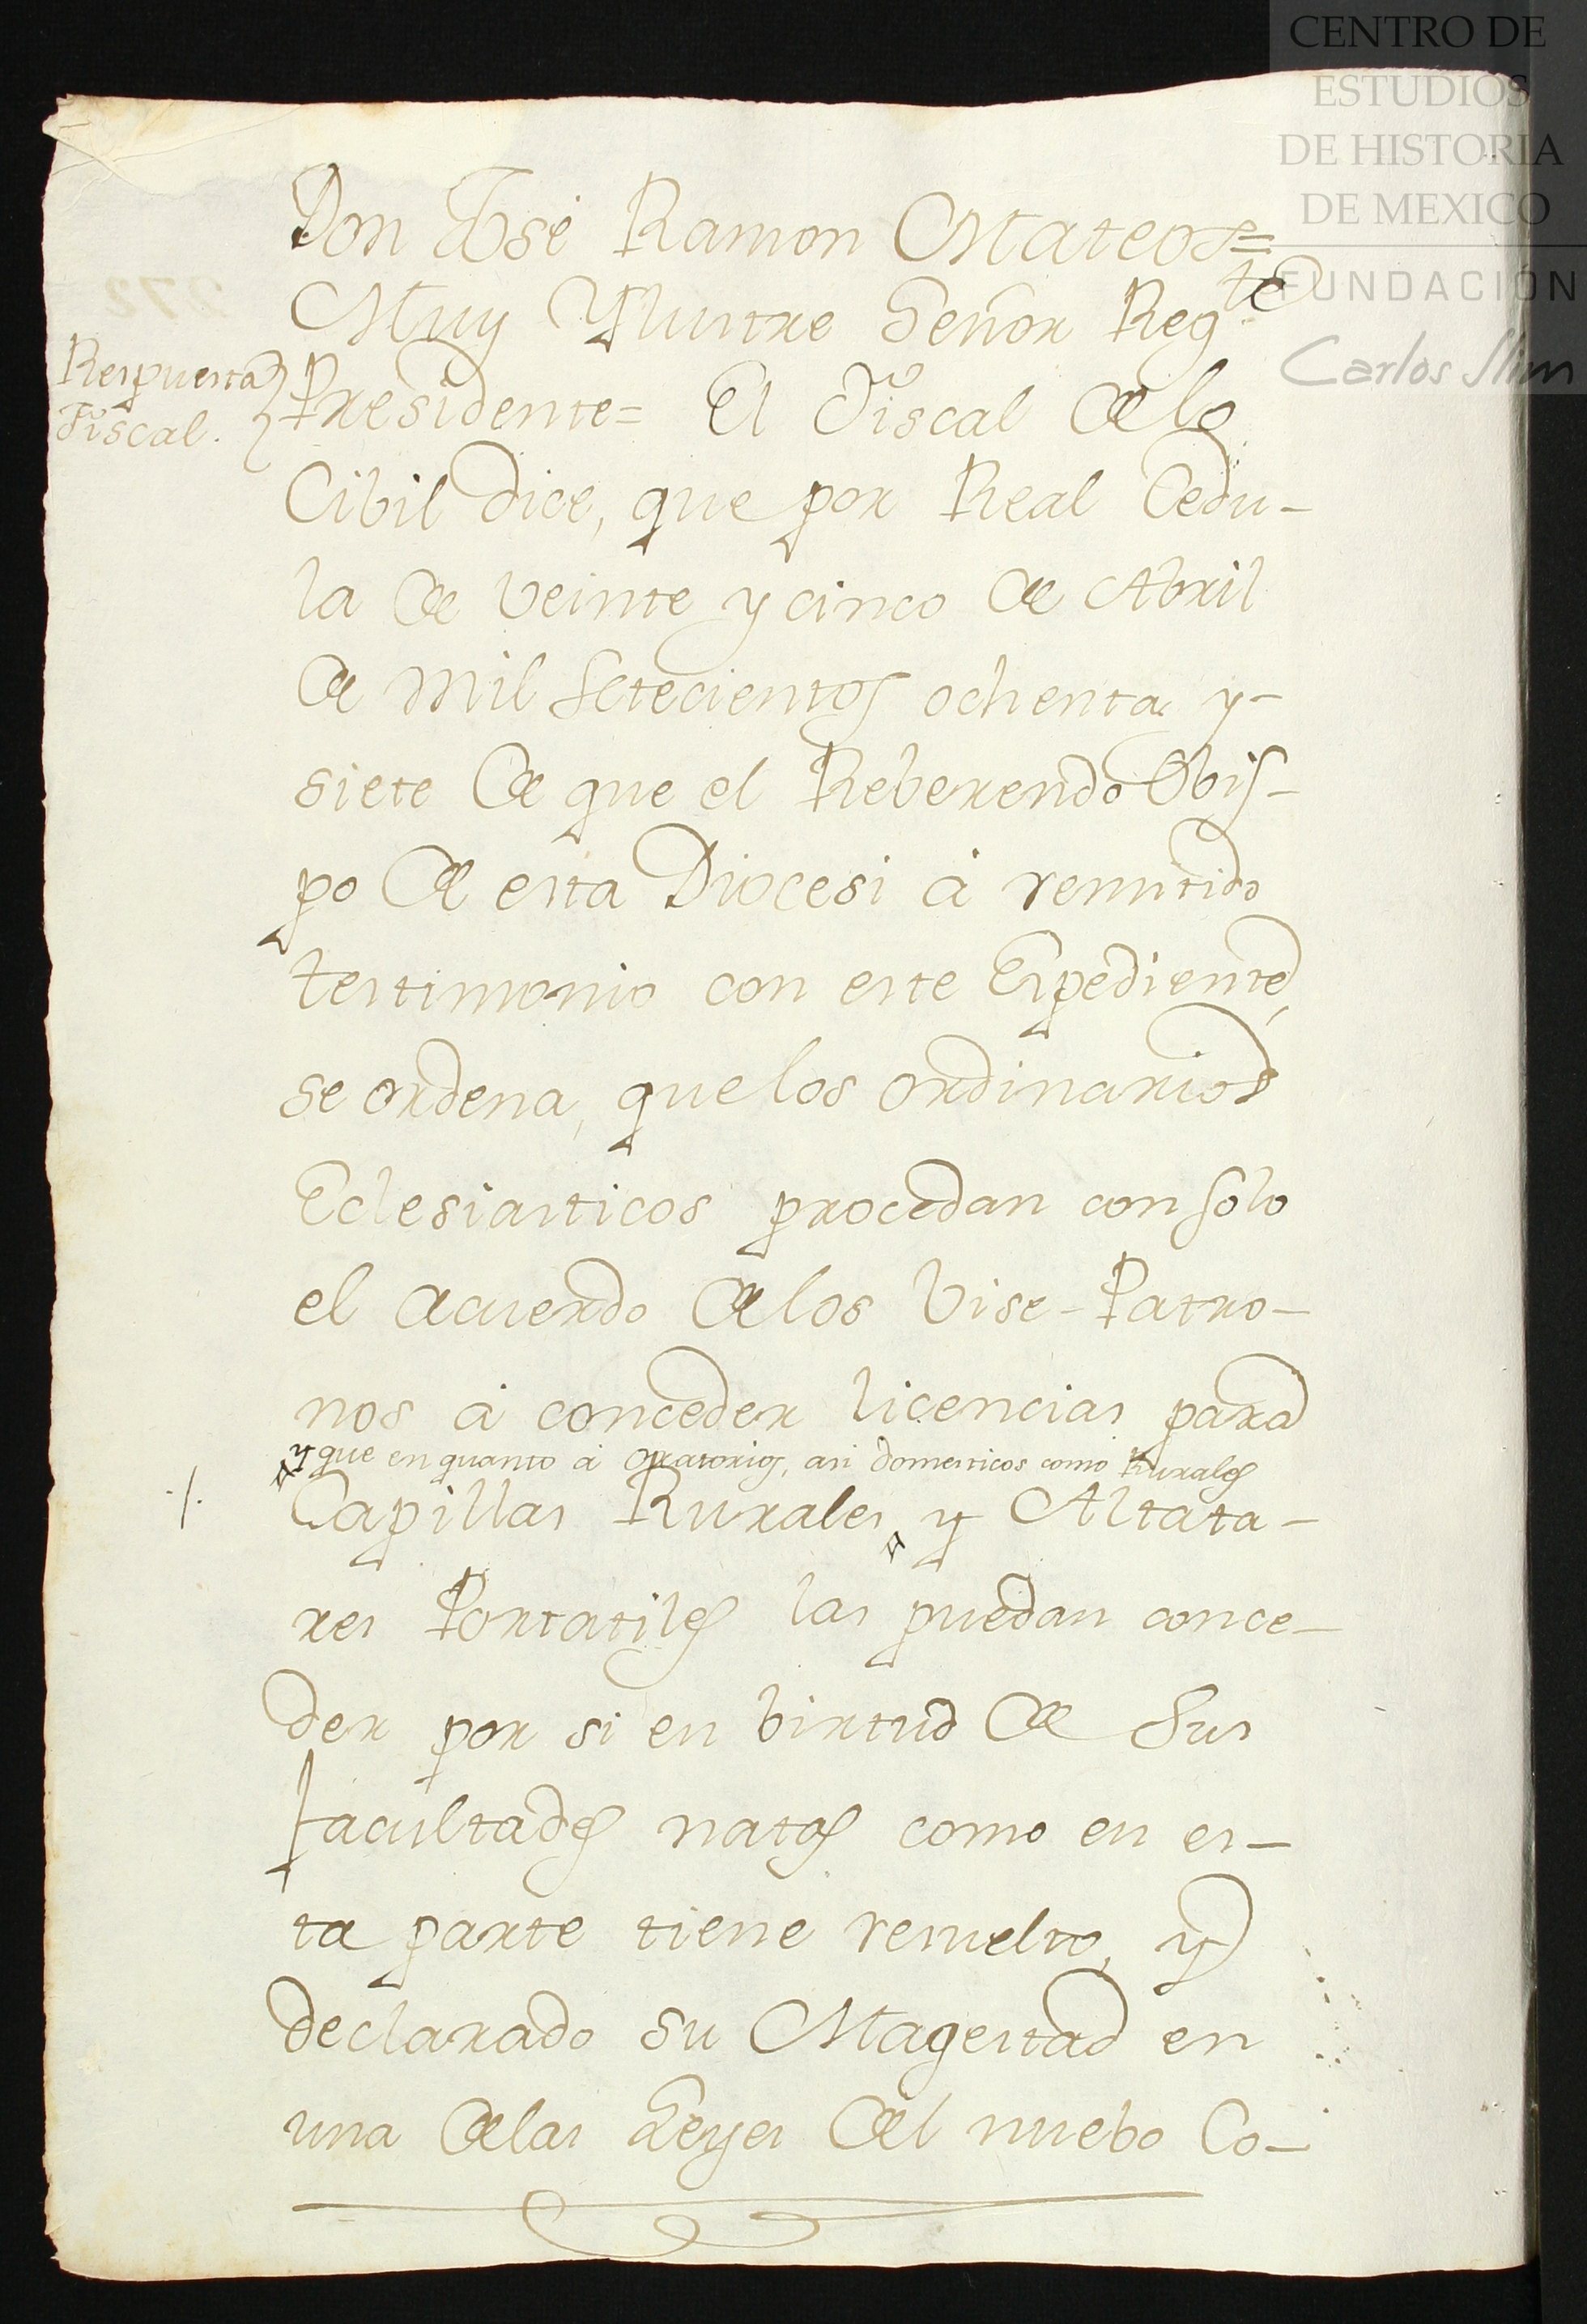 CENTRO DE
ESTUDIOS
DE HISTORIA
DE MEXICO
FUNDACIÓN
Carlos Slim
Don José Ramon Mateos=
Muy Yllustre Señor Reg.te
Respuesta
Fiscal.
Presidente= El Fiscal de lo
Cibil dice, que por Real Cedu-
la de veinte y cinco de Abril
de mil setecientos ochenta y-
siete de que el Reberendo Obis-
po de esta Diocesi á remitido
testimonio con este Espediente,
se ordena, que los ordinarios
Eclesiasticos procedan con solo
el acuerdo de los Vise-Patro-
nos á conceder licencias para
y que en quanto á oratorios, asi domesticos como Rurales
./. Capillas Rurales, y Altata-
res Portatiles las puedan conce-
der por si en birtud de sus
facultades natas como en es-
ta parte tiene resuelto, y
declarado su Magestad en
una de las Leyes del nuebo Co-